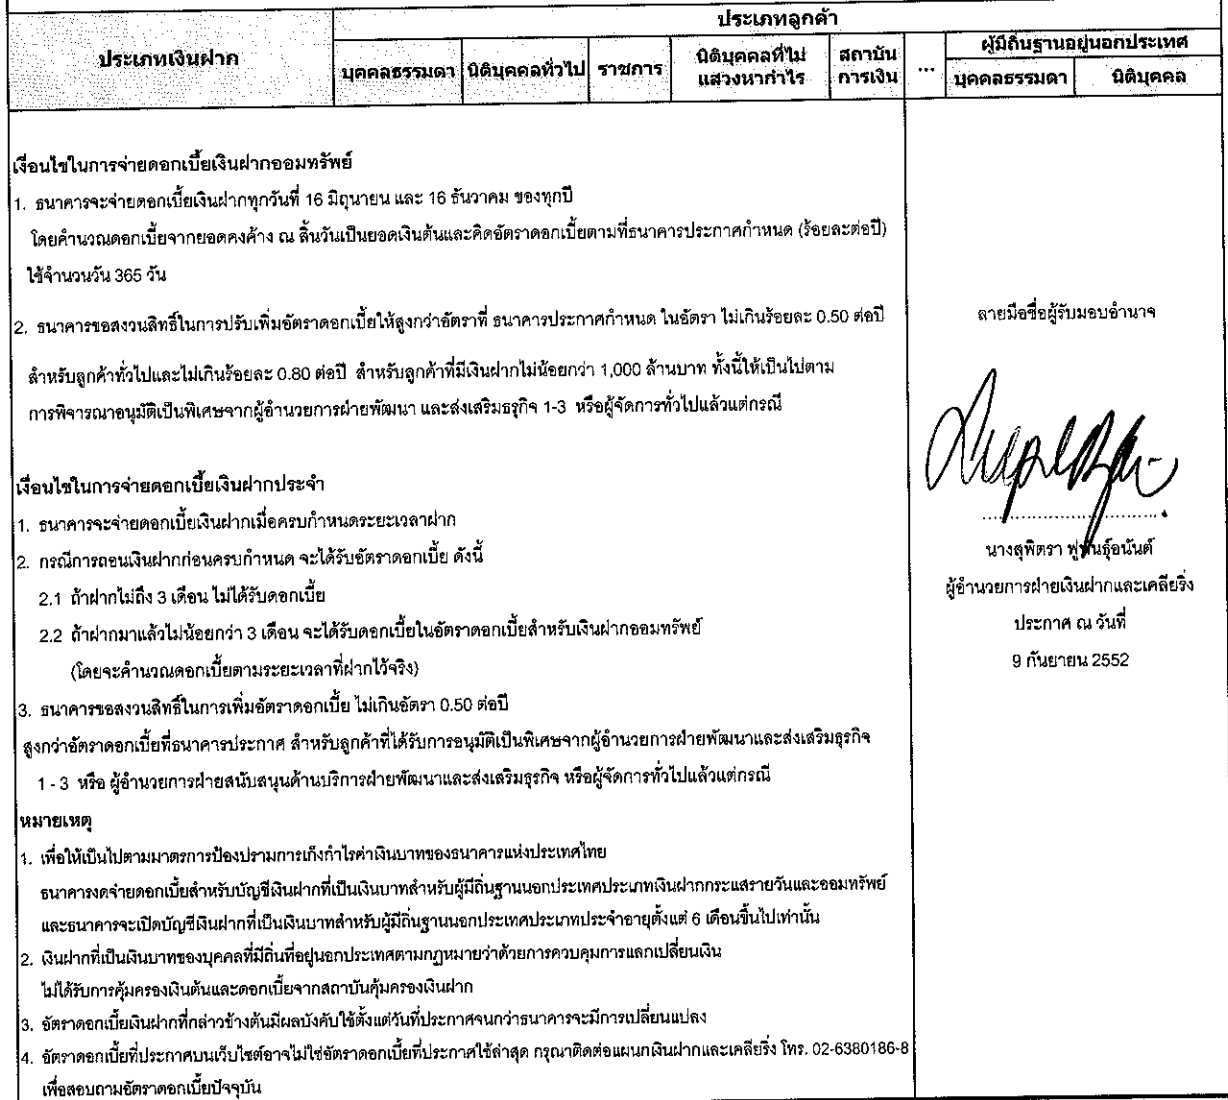 ประเภทลูกค้า
ประเภทเงินฝาก
บุคคลธรรมดา นิติบุคคลทั่วไป ราชการ นิติบุคคลที่ไม่แสวงหากำไร สถาบันการเงิน ... ผู้มีถิ่นฐานอยู่นอกประเทศ
บุคคลธรรมดา นิติบุคคล
เงื่อนไขในการจ่ายดอกเบี้ยเงินฝากออมทรัพย์
1. ธนาคารจะจ่ายดอกเบี้ยเงินฝากทุกวันที่ 16 มิถุนายน และ 16 ธันวาคม ของทุกปี
โดยคำนวณดอกเบี้ยจากยอดคงค้าง ณ สิ้นวันเป็นยอดเงินต้นและคิดอัตราดอกเบี้ยตามที่ธนาคารประกาศกำหนด (ร้อยละต่อปี)
ใช้จำนวนวัน 365 วัน
2. ธนาคารขอสงวนสิทธิ์ในการปรับเพิ่มอัตราดอกเบี้ยให้สูงกว่าอัตราที่ ธนาคารประกาศกำหนด ในอัตรา ไม่เกินร้อยละ 0.50 ต่อปี
สำหรับลูกค้าทั่วไปและไม่เกินร้อยละ 0.80 ต่อปี สำหรับลูกค้าที่มีเงินฝากไม่น้อยกว่า 1,000 ล้านบาท ทั้งนี้ให้เป็นไปตาม
การพิจารณาอนุมัติเป็นพิเศษจากผู้อำนวยการฝ่ายพัฒนา และส่งเสริมธุรกิจ 1-3 หรือผู้จัดการทั่วไปแล้วแต่กรณี
เงื่อนไขในการจ่ายดอกเบี้ยเงินฝากประจำ
1. ธนาคารจะจ่ายดอกเบี้ยเงินฝากเมื่อครบกำหนดระยะเวลาฝาก
2. กรณีการถอนเงินฝากก่อนครบกำหนด จะได้รับอัตราดอกเบี้ย ดังนี้
2.1 ถ้าฝากไม่ถึง 3 เดือน ไม่ได้รับดอกเบี้ย
2.2 ถ้าฝากมาแล้วไม่น้อยกว่า 3 เดือน จะได้รับดอกเบี้ยในอัตราดอกเบี้ยสำหรับเงินฝากออมทรัพย์
(โดยจะคำนวณดอกเบี้ยตามระยะเวลาที่ฝากไว้จริง)
3. ธนาคารขอสงวนสิทธิ์ในการเพิ่มอัตราดอกเบี้ย ไม่เกินอัตรา 0.50 ต่อปี
สูงกว่าอัตราดอกเบี้ยที่ธนาคารประกาศ สำหรับลูกค้าที่ได้รับการอนุมัติเป็นพิเศษจากผู้อำนวยการฝ่ายพัฒนาและส่งเสริมธุรกิจ
1 - 3 หรือ ผู้อำนวยการฝ่ายสนับสนุนด้านบริการฝ่ายพัฒนาและส่งเสริมธุรกิจ หรือผู้จัดการทั่วไปแล้วแต่กรณี
หมายเหตุ
1. เพื่อให้เป็นไปตามมาตรการป้องปรามการเก็งกำไรค่าเงินบาทของธนาคารแห่งประเทศไทย
ธนาคารงดจ่ายดอกเบี้ยสำหรับบัญชีเงินฝากที่เป็นเงินบาทสำหรับผู้มีถิ่นฐานนอกประเทศประเภทเงินฝากกระแสรายวันและออมทรัพย์
และธนาคารจะเปิดบัญชีเงินฝากที่เป็นเงินบาทสำหรับผู้มีถิ่นฐานนอกประเทศประเภทประจำอายุตั้งแต่ 6 เดือนขึ้นไปเท่านั้น
2. เงินฝากที่เป็นเงินบาทของบุคคลที่มีถิ่นที่อยู่นอกประเทศตามกฎหมายว่าด้วยการควบคุมการแลกเปลี่ยนเงิน
ไม่ได้รับการคุ้มครองเงินต้นและดอกเบี้ยจากสถาบันคุ้มครองเงินฝาก
3. อัตราดอกเบี้ยเงินฝากที่กล่าวข้างต้นมีผลบังคับใช้ตั้งแต่วันที่ประกาศจนกว่าธนาคารจะมีการเปลี่ยนแปลง
4. อัตราดอกเบี้ยที่ประกาศบนเว็บไซต์อาจไม่ใช่อัตราดอกเบี้ยที่ประกาศใช้ล่าสุด กรุณาติดต่อแผนกเงินฝากและเคลียริ่ง โทร. 02-6380186-8
เพื่อสอบถามอัตราดอกเบี้ยปัจจุบัน
ลายมือชื่อผู้รับมอบอำนาจ
นางสุพิตรา ฟูพันธุ์อนันต์
ผู้อำนวยการฝ่ายเงินฝากและเคลียริ่ง
ประกาศ ณ วันที่
9 กันยายน 2552